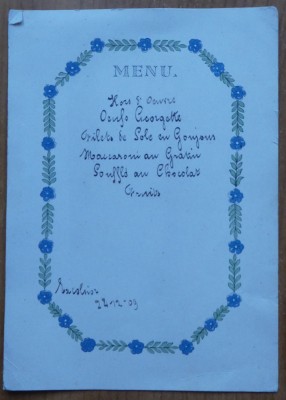 MENU.
Hors d'Oeuvre
Oeufs Georgette
Filets de Sole en Goujons
Maccaroni au Gratin
Soufflé au Chocolat
Fruits